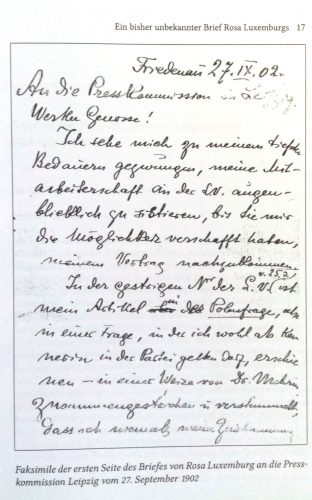 Ein bisher unbekannter Brief Rosa Luxemburgs 17
Friedenau 27.IX.02.
An die Presskommission in
Werte Genosse!
Ich sehe mich zu meinem tiefsten
Bedauern gezwungen, meine Mit-
arbeiterschaft an der L.V. augen-
blicklich zu sistieren, bis Sie mir
die Möglichkeit verschafft haben,
meinem Vertrag nachzukommen.
In der gestrigen Nr der L.V. ist
mein Artikel Polenfrage, also
in einer Frage, in der ich wohl als Ken
nerin in der Partei gelten darf, erschie
nen – in einer Weise von Dr. Mehring
zusammengestrichen u. verstümmelt,
dass ich niemals meine Zustimmung
Faksimile der ersten Seite des Briefes von Rosa Luxemburg an die Press-
kommission Leipzig vom 27. September 1902